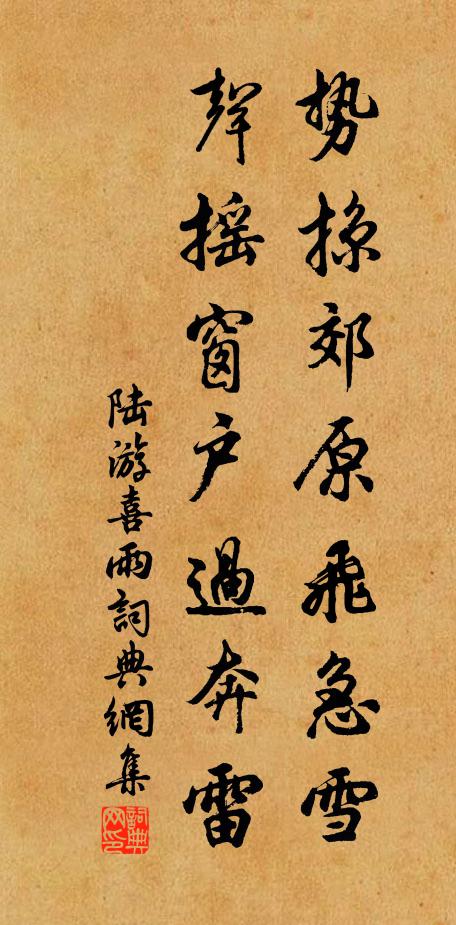 势掠郊原飛急雪
聲摇窗户過奔雷
陆游喜雨詞典網集
詞典网印